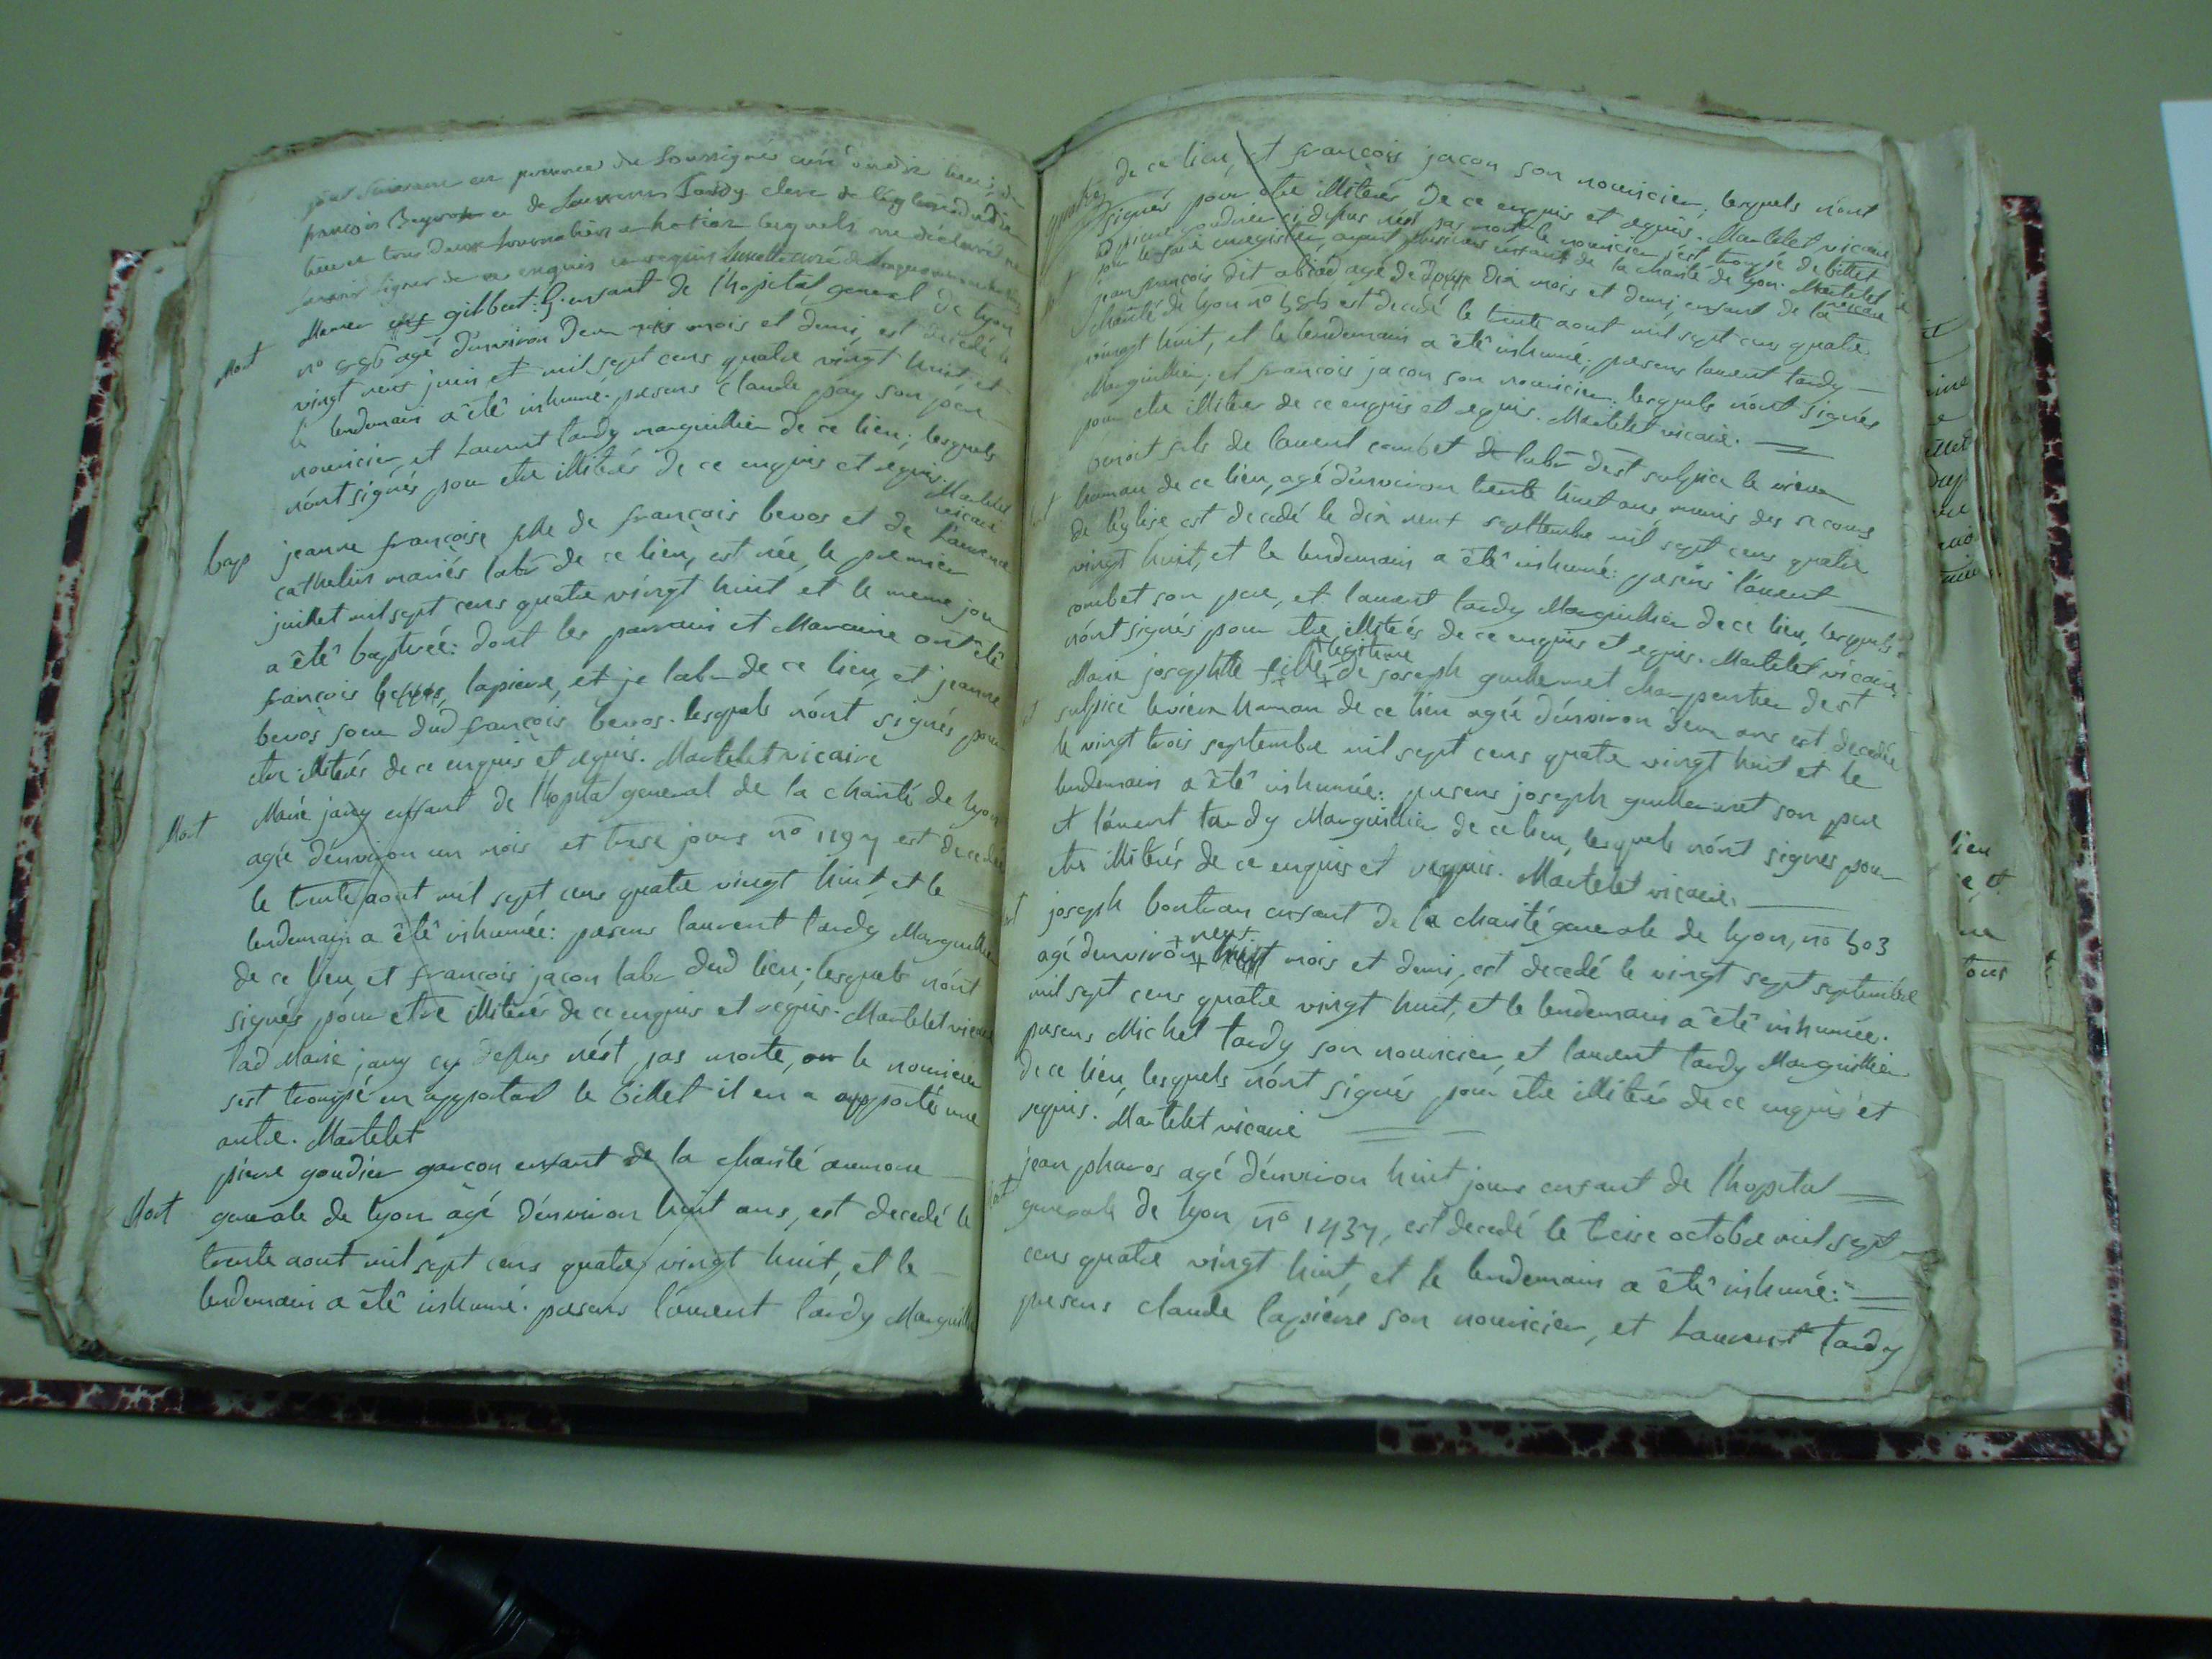 françois et de Laurent Tardy clerc de
Mort
gilbert: G. enfant de l'hopital general de lyon
n.o 556 agé d'environ deux mois et demi, est decedé le
vingt neuf juin et mil sept cens quatre vingt huit, et
le lendemain a êtê inhumé. presens Claude pay son pere
nouricier, et Laurent tardy marguillier de ce lieu; lesquels
n'ont signés pour etre illiterés de ce enquis et requis. Martelet
vicaire
bap
jeanne françoise fille de françois bevos et de Laurence
cathelin mariés labr de ce lieu, est née, le premier
juillet mil sept cens quatre vingt huit et le meme jour
a êtê baptisée: dont les parrain et Maraine ont êtê
françois lapierre, et je labr de ce lieu, et jeanne
bevos soeur dud françois bevos. lesquels n'ont signés pour
etre illiterés de ce enquis et requis. Martelet vicaire
Mort
Marie jany enfant de l'hopital general de la charité de lyon
agée d'environ un mois et trese jours n.o 1197 est decedée
le trente aout mil sept cens quatre vingt huit, et le
lendemain a êtê inhumée: presens laurent tardy Marguillier
de ce lieu, et françois jacon labr dud lieu; lesquels n'ont
signés pour etre illiterés de ce enquis et requis. Martelet vicaire
lad Marie jany cy dessus n'est pas morte, le nouricier
s'est trompé en apportat le billet il en a apporté une
autre. Martelet
Mort
pierre goudier garcon enfant de la charité aumone
generale de lyon agé d'environ huit ans, est decedé le
trente aout mil sept cens quatre vingt huit, et le
lendemain a êtê inhumé. presens laurent tardy Marguillier
de ce lieu, et françois jacon son nouricier, lesquels n'ont
signés pour etre illiterés de ce enquis et requis. Martelet vicaire
pierre goudier ci dessus n'est pas mort le nouricier s'est trompé de billet
pour le faire enregistrer, ayant plusieurs enfans de la charité de lyon. Martelet
vicaire
jean françois dit abiod agé de dix mois et demi, enfant de la
charité de lyon n.o 586 est decedé le trente aout mil sept cens quatre
vingt huit, et le lendemain a êtê inhumé. presens laurent tardy
Marguillier, et françois jacon son nouricier. lesquels n'ont signés
pour etre illiteré de ce enquis et requis. Martelet vicaire.
benoit fils de laurent combet labr dest sulpice le vieux
hameau de ce lieu, agé d'environ trente huit ans, munis des secours
de l'église est decedé le dix neuf septtembre mil sept cens quatre
vingt huit, et le lendemain a êtê inhumé: presens laurent
combet son pere, et laurent tardy Marguillier de ce lieu, lesquels
n'ont signés pour etre illiterés de ce enquis et requis. Martelet vicaire.
+ legitime
Marie josephtte fille + de joseph guillermet charpentier dest
sulpice levieux hamau de ce lieu agée d'environ deux ans est decedée
le vingt trois septembre mil sept cens quatre vingt huit et le
lendemain a êtê inhumée: presens joseph guillermet son pere
et laurent tardy Marguillier de ce lieu, lesquels n'ont signés pour
etre illiterés de ce enquis et requis. Martelet vicaire.
joseph bontran enfant de la charité generale de lyon, n.o 503
+ neuf
agé d'environ + huit mois et demi, est decedé le vingt sept septembre
mil sept cens quatre vingt huit, et le lendemain a êtê inhumée.
presens Michel tardy son nouricier, et laurent tardy Marguillier
de ce lieu, lesquels n'ont signés pour etre illiteré de ce enquis et
requis. Martelet vicaire
jean pharos agé d'environ huit jours enfant de l'hopital
generale de lyon n.o 1437, est decedé le treise octobre mil sept
cens quatre vingt huit, et le lendemain a êtê inhumé:
presens claude lapierre son nouricier, et Laurent tardy